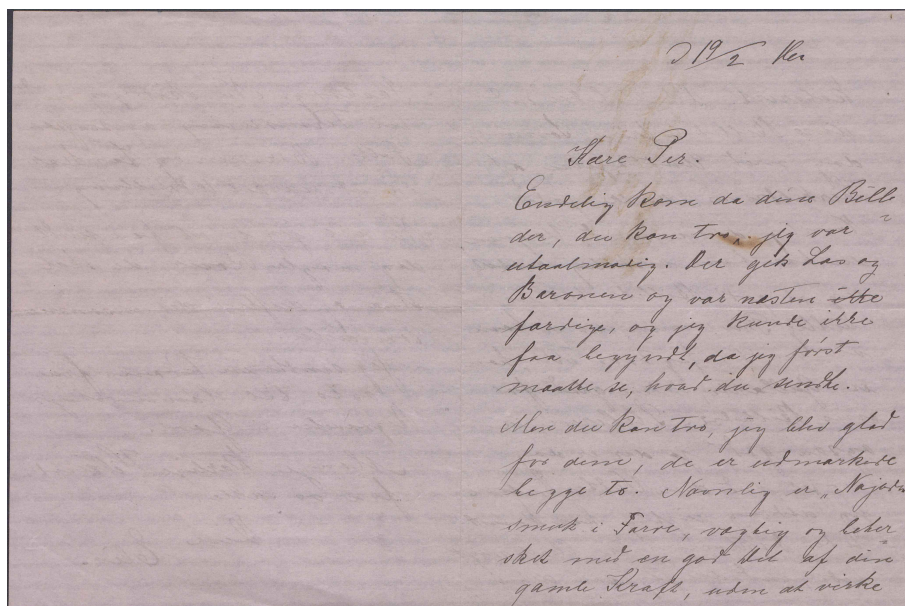 D 19/2 Her
Kære Per.
Endelig kom da dine Bille
der, du kan tro, jeg var
utaalmodig. Der gik Las og
Baronen og var næsten ikke
færdige, og jeg kunde ikke
faa begyndt, da jeg först
maatte se, hvad du sendte.
Men du kan tro, jeg blev glad
for dem, de er udmærkede
begge to. Navnlig er „Najaden
smuk i Farve, vægtig og beher
sket med en god Del af din
gamle Kraft, uden at virke